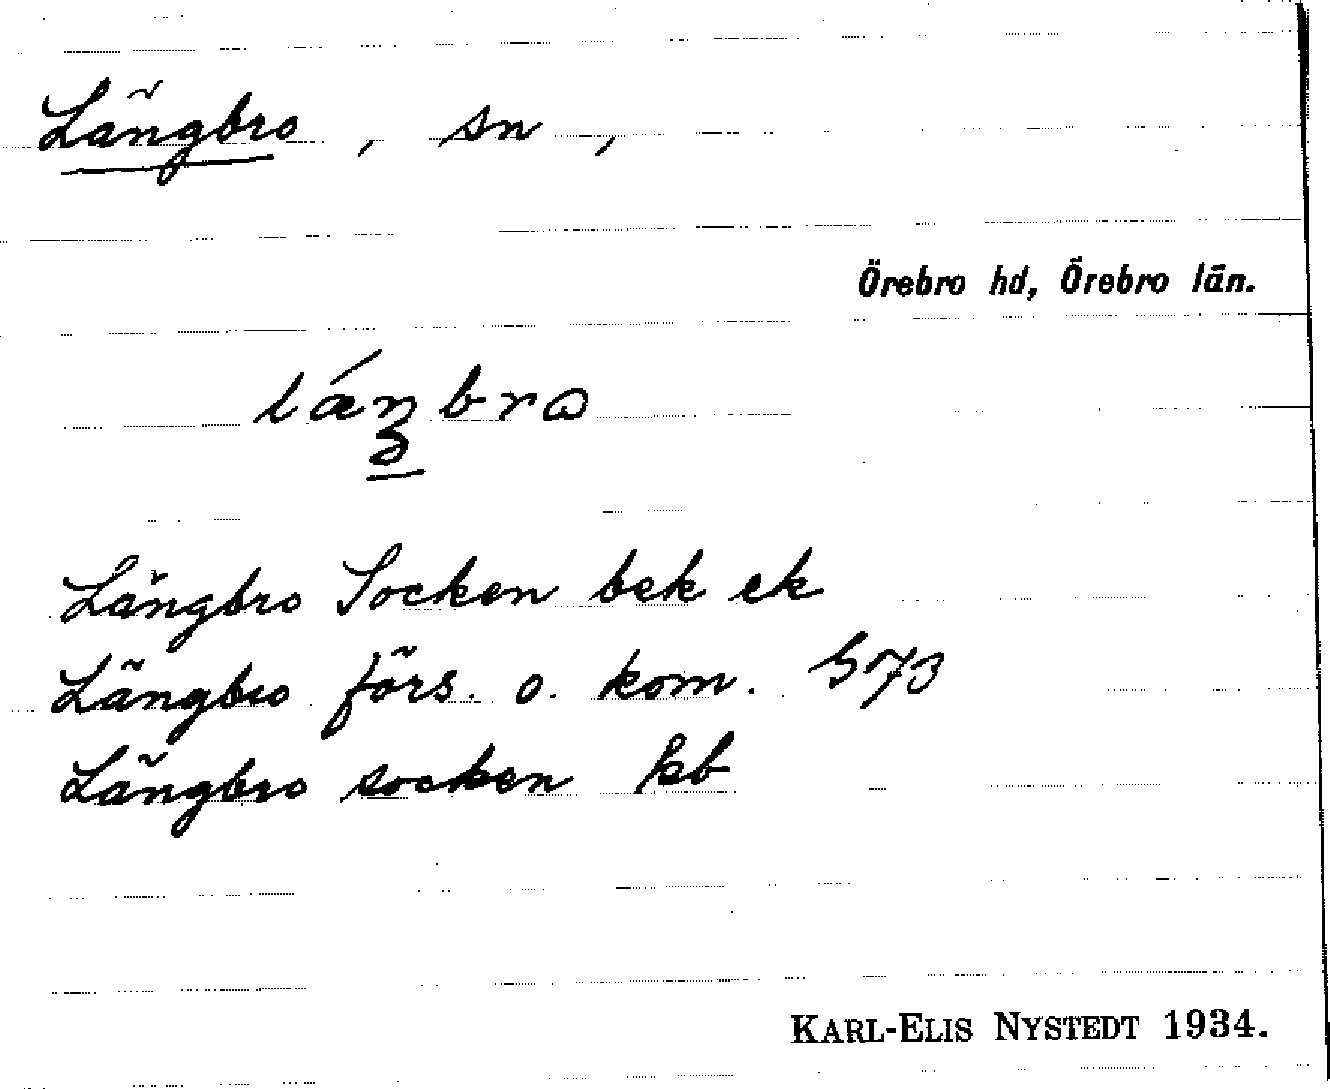 Längbro, sn,
Örebro hd, Örebro län.
Längbro Socken bek ek
Längbro förs. o. kom. S73
Längbro socken kb
KARL-ELIS NYSTEDT 1934.